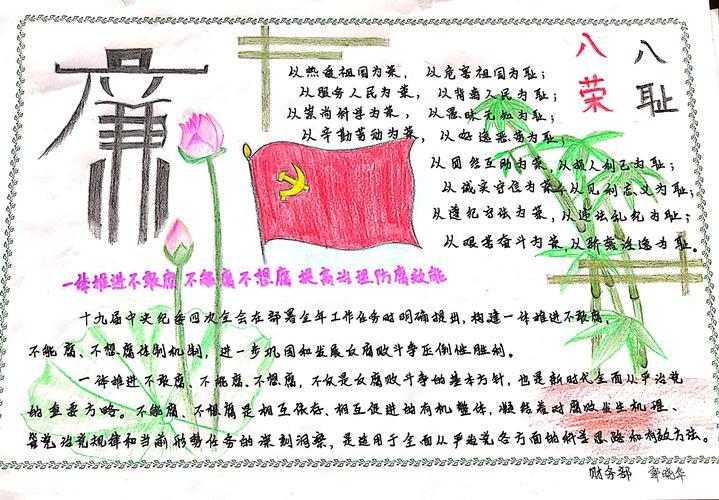 廉
八荣
八耻
以热爱祖国为荣， 以危害祖国为耻；
以服务人民为荣， 以背离人民为耻；
以崇尚科学为荣， 以愚昧无知为耻；
以辛勤劳动为荣， 以好逸恶劳为耻；
以团结互助为荣，以损人利己为耻；
以诚实守信为荣，以见利忘义为耻；
以遵纪守法为荣，以违法乱纪为耻；
以艰苦奋斗为荣，以骄奢淫逸为耻。
一体推进不敢腐 不能腐 不想腐 提高治理防腐效能
十九届中央纪委四次全会在部署全年工作任务时明确提出，构建一体推进不敢腐，
不能腐、不想腐体制机制，进一步巩固和发展反腐败斗争压倒性胜利。
一体推进不敢腐、不能腐、不想腐，不仅是反腐败斗争的基本方针，也是新时代全面从严治党
的重要方略。不能腐、不想腐是相互依存、相互促进的有机整体，凝结着对腐败发生机理、
管党治党规律和当前形势任务的深刻洞察，是适用于全面从严治党各方面的科学思路和有效方法。
财务部